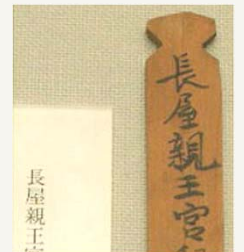 長屋親王宮
長屋親王宮